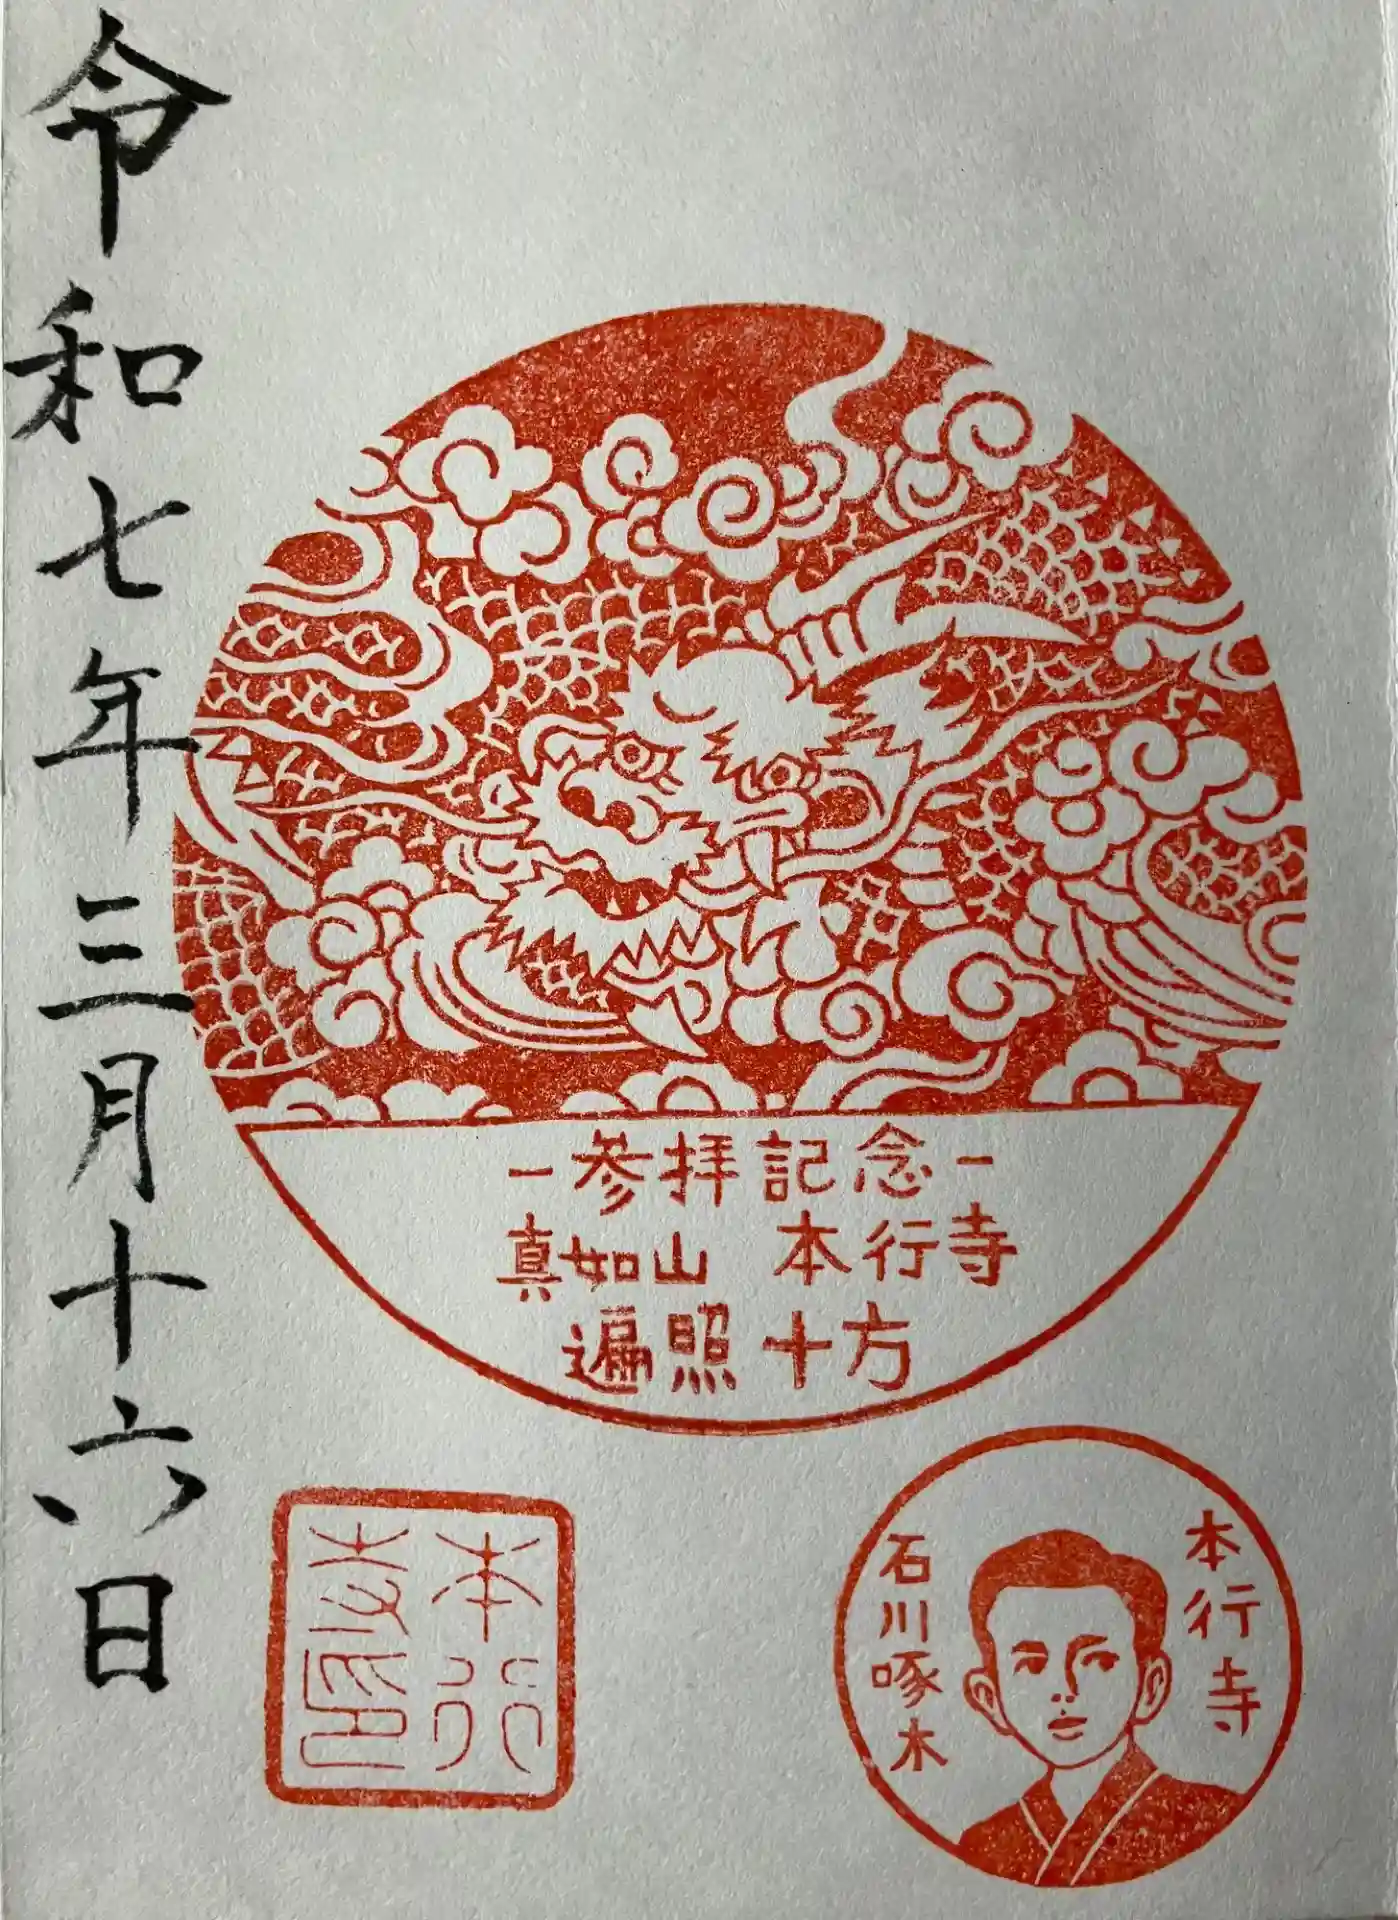 令和七年三月十六日
－参拝記念－
真如山 本行寺
遍照十方
本行寺印
本行寺
石川啄木